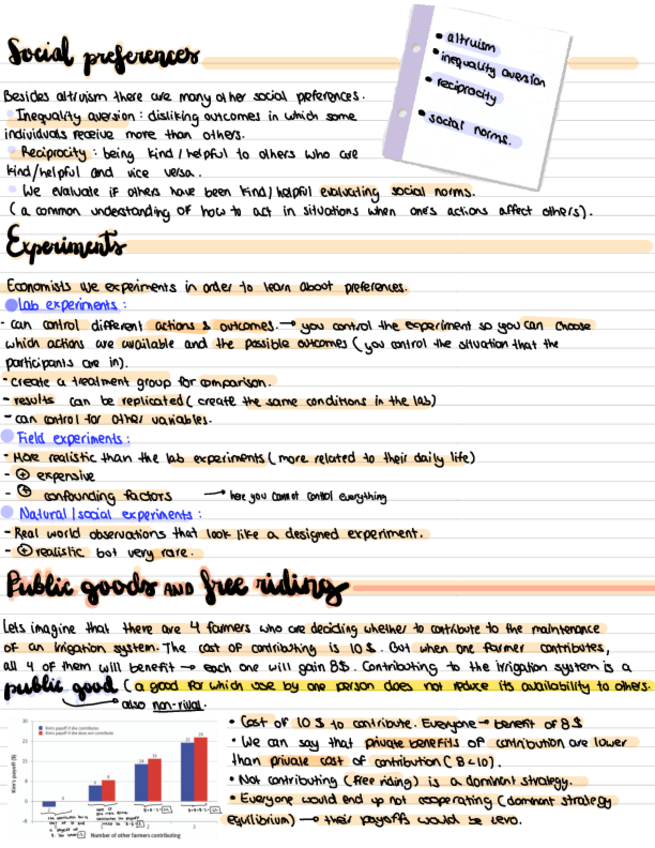 Social preferences
• altruism
• inequality aversion
• reciprocity
• social norms.
Besides altruism there are many other social preferences.
Inequality aversion : disliking outcomes in which some
individuals receive more than others.
Reciprocity : being kind / helpful to others who are
kind/helpful and vice versa.
We evaluate if others have been kind / helpful evaluating social norms.
( a common understanding of how to act in situations when one's actions affect others ).
Experiments
Economists use experiments in order to learn about preferences.
Lab experiments :
- can control different actions & outcomes. → you control the experiment so you can choose
which actions are available and the possible outcomes ( you control the situation that the
participants are in).
- create a treatment group for comparison.
- results can be replicated ( create the same conditions in the lab)
- can control for other variables.
Field experiments :
- More realistic than the lab experiments ( more related to their daily life)
- ⊕ expensive
- ⊕ confounding factors → here you cannot control everything
Natural / social experiments :
- Real world observations that look like a designed experiment.
- ⊕ realistic but very rare.
Public goods AND free riding
Lets imagine that there are 4 farmers who are deciding whether to contribute to the maintenance
of an irrigation system. The cost of contributing is 10 $. But when one farmer contributes,
all 4 of them will benefit → each one will gain 8$. Contributing to the irrigation system is a
public good ( a good for which use by one person does not reduce its availability to others.
also non-rival.
Kim's payoff if she contributes
Kim's payoff if she does not contribute
Kim's payoff ($)
Number of other farmers contributing
• Cost of 10 $ to contribute. Everyone → benefit of 8 $
• We can say that private benefits of contribution are lower
than private cost of contribution ( 8 < 10).
• Not contributing ( free riding) is a dominant strategy.
• Everyone would end up not cooperating ( dominant strategy
equilibrium) → their payoffs would be zero.